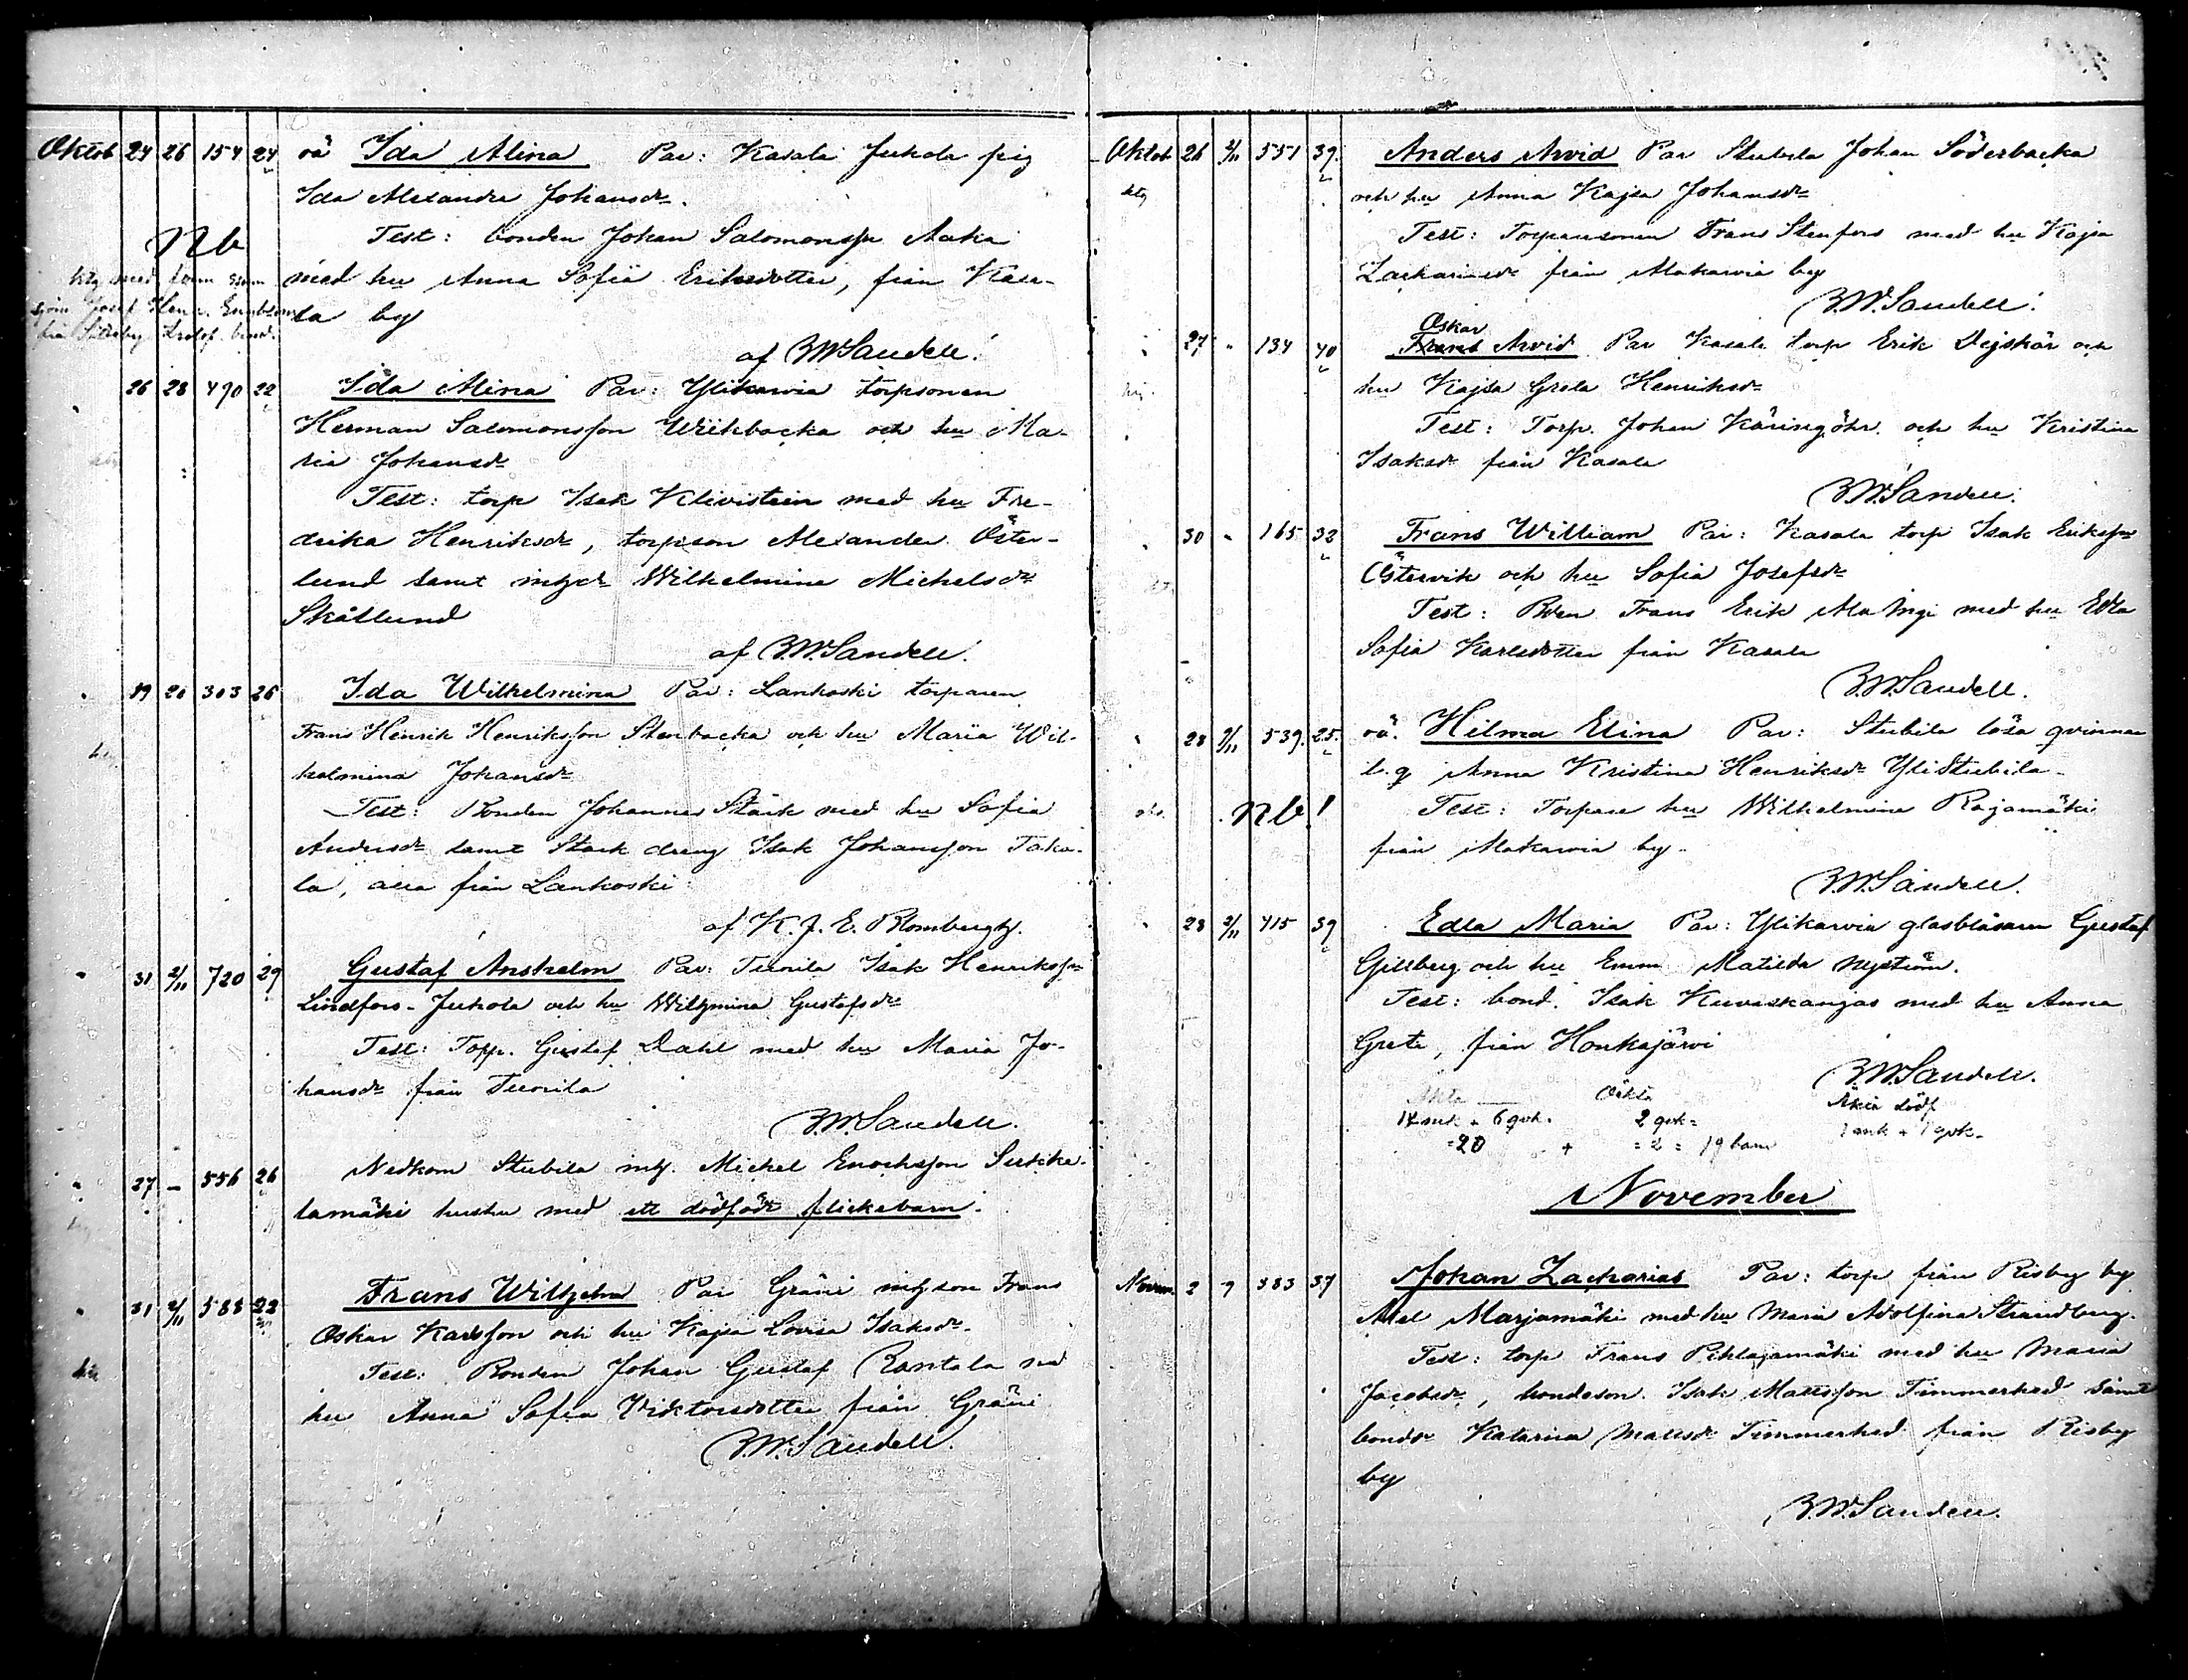 Oktob 24 26 154 24 oä Ida Alina Par: Kasala Jukola pig
Ida Alexandra Johansdr.
Test: bonden Johan Salomonsson Aaka
Nb
med hu Anna Sofia Eriksdotter, från Kasa-
la by
af B.W.Sandell.
26 28 490 22 Ida Alina Par: Ylikarvia torpsonen
Herman Salomonsson Wiikbacka och hu Ma-
ria Johansdr
Test: torp Isak Klivistein med hu Fre-
drika Henriksdr, torpson Alexander Öster-
lund samt inhdr Wilhelmina Michelsdr
Skåtlund
af B.W.Sandell.
19 20 303 26 Ida Wilhelmina Par: Lankoski torparen
Frans Henrik Henriksson Stenbacka och hu Maria Wil-
helmina Johansdr
Test: Bonden Johannes Stark med hu Sofia
Andersdr samt Stark dreng Isak Johansson Taka-
la, alla från Lankoski
af K. J. E. Blombergh.
31 2/11 720 29 Gustaf Anshelm Par: Tuorila Isak Henriksson
Lindfors-Jukola och hu Wilhmina Gustafsdr
Test: Torp. Gustaf Dahl med hu Maria Jo-
hansdr från Tuorila
B.W.Sandell.
27 – 556 26 Nedkom Stubila inh. Michel Enochsson Sukka-
lamäki hustru med ett dödfödt flickebarn.
31 2/11 588 22 Frans Wilhelm Par Gräni inhson Frans
Oskar Karlsson och hu Kajsa Lovisa Isaksdr.
Test: Bonden Johan Gustaf Rantala
hu Anna Sofia Viktorsdotter från Gräni
B.W.Sandell.
Oktob 26 2/11 551 39. Anders Arvid Par Stubila Johan Söderbacka
och hu Anna Kajsa Johansdr
Test: Torparesonen Frans Stenfors med hu Kajsa
Zachariasdr från Alakarvia by
B.W.Sandell.
Oskar
27 " 134 40 Frans Arvid Par Kasala torp Erik Dejskär och
hu Kajsa Greta Henriksdr
Test: Torp. Johan Käringöhr. och hu Kristina
Isaksdr från Kasala
B.W.Sandell.
30 " 165 32 Frans William Par: Kasala torp Isak Eriksson
Östervik och hu Sofia Josefsdr
Test: Frans Erik med hu Edla
Sofia Karlsdotter från Kasala
B.W.Sandell.
28 2/11 539. 25. oä. Hilma Elina Par: Stubila lösa qvinnan
l.q Anna Kristina Henriksdr Ylistubila.
Nb! Test: Torpare hu Wilhelmina Rajamäki
från Alakarvia by.
B.W.Sandell.
28 2/11 415 39 Edla Maria Par: Ylikarvia glasblåsaren Gustaf
Gillberg och hu Emm Matilda Nyström.
Test: bond. Isak Kuvaskangas med hu Anna
Greta, från Honkajärvi
B.W.Sandell.
Äkta Oäkta Äkta dödf
14 mk + 6 qvk. 2 qvk= 1 mk + 1 qvk.
=20 + =2= 19 barn
November
Novem. 2 9 383 37 Johan Zacharias Par: torp från Risby by
Axel Marjamäki med hu Maria Adolfina Strandberg.
Test: torp Frans Pihlajamäki med hu Maria
Jacobsdr, bondeson. Isak Mattsson Timmerhed samt
bondr Katarina Mattsdr Timmerhed från Risby
by
B.W.Sandell.